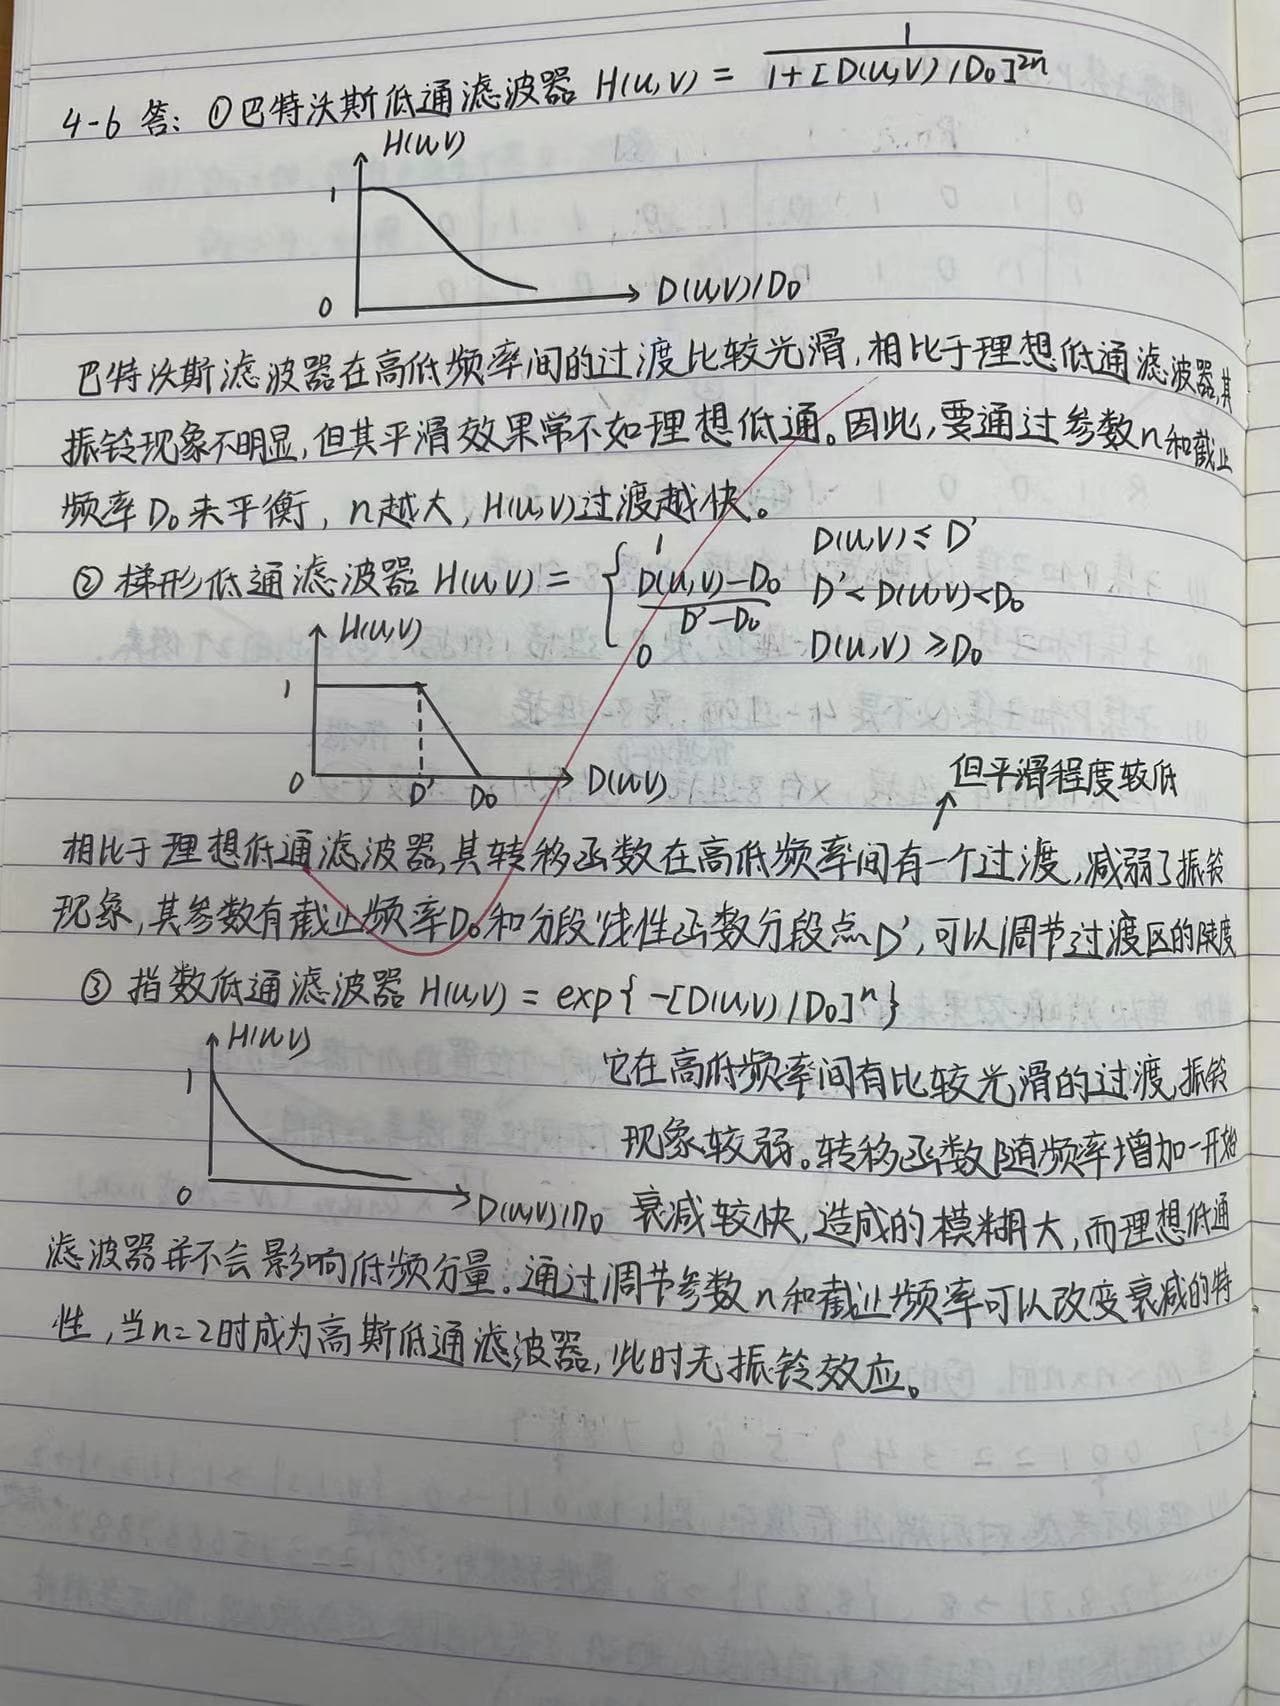 4-6 答: ①巴特沃斯低通滤波器 H(u,v) = 1 / 1+[D(u,v)/D₀]²ⁿ
H(u,v)
1
0
D(u,v)/D₀
巴特沃斯滤波器在高低频率间的过渡比较光滑,相比于理想低通滤波器,其
振铃现象不明显,但其平滑效果常不如理想低通。因此,要通过参数n和截止
频率D₀来平衡,n越大,H(u,v)过渡越快。
②梯形低通滤波器 H(u,v) = { 1 D(u,v)≤D'
D(u,v)-D₀ / D'-D₀ D'<D(u,v)<D₀
0 D(u,v)≥D₀
H(u,v)
1
0 D' D₀ D(u,v)
但平滑程度较低
相比于理想低通滤波器,其转移函数在高低频率间有一个过渡,减弱了振铃
现象,其参数有截止频率D₀和分段线性函数分段点D',可以调节过渡区的陡度
③指数低通滤波器 H(u,v) = exp{-[D(u,v)/D₀]ⁿ}
H(u,v)
1
0
D(u,v)/D₀
它在高低频率间有比较光滑的过渡,振铃
现象较弱。转移函数随频率增加一开始
衰减较快,造成的模糊大,而理想低通
滤波器并不会影响低频分量。通过调节参数n和截止频率可以改变衰减的特
性,当n=2时成为高斯低通滤波器,此时无振铃效应。